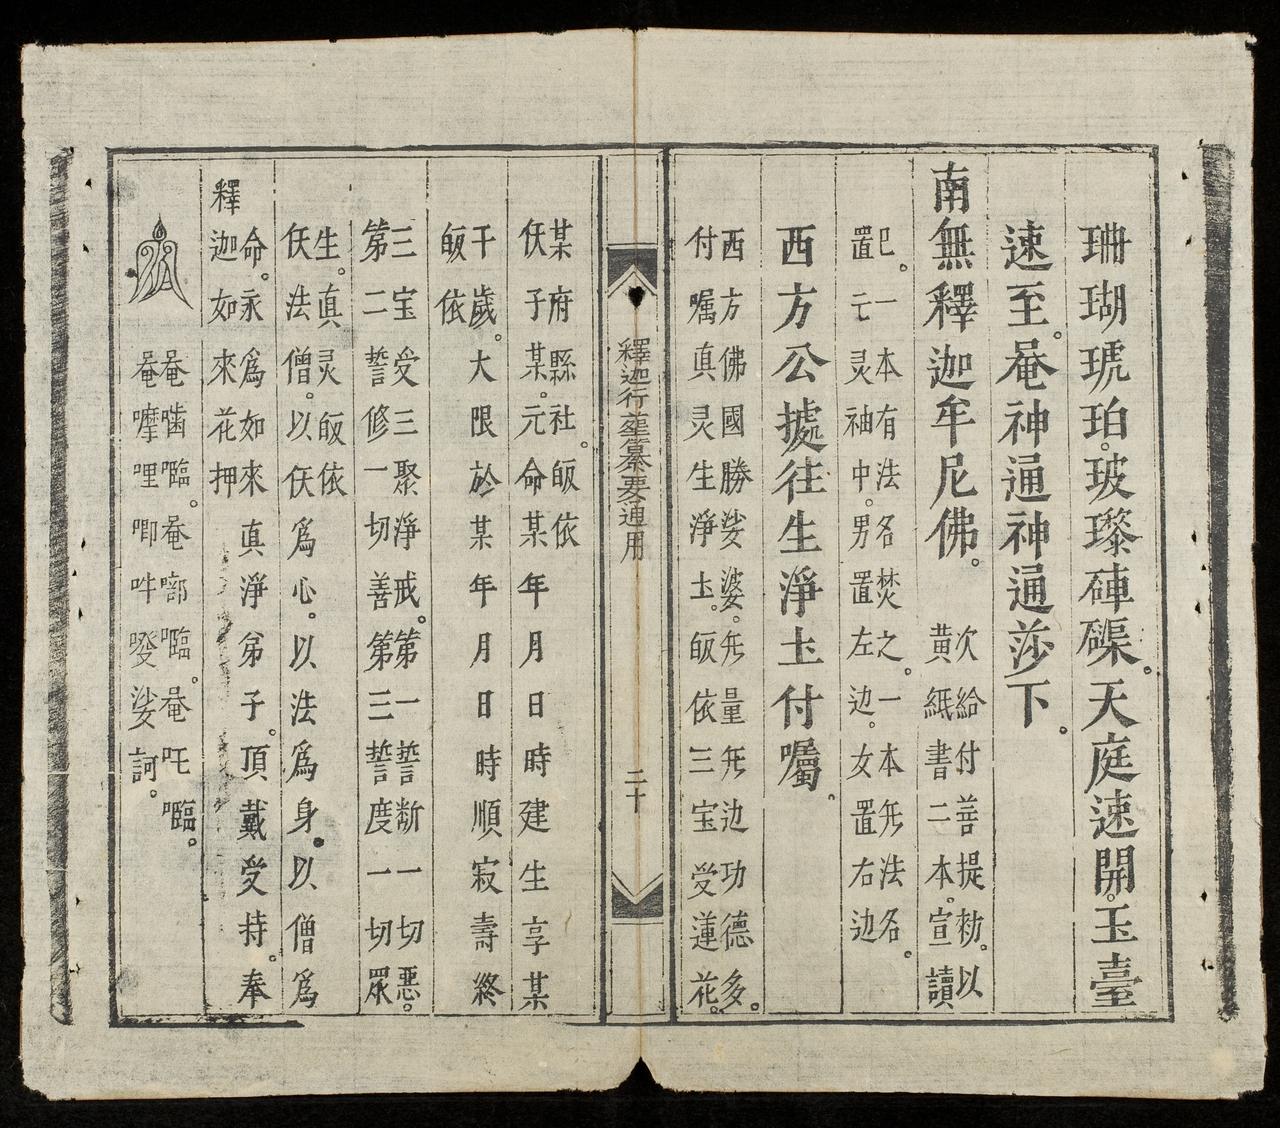 珊瑚琥珀。玻瓈硨磲。天庭速開。玉臺
速至。菴神通神通莎下。
南無釋迦牟尼佛。
次給付善提勑。以
黄紙書二本。宣讀
巳。一本有法名焚之。一本無法名。
置亡灵袖中。男置左边。女置右边
西方公據往生淨土付囑。
西方佛國勝娑婆。無量無边功德多。
付嘱真灵生淨土。皈依三宝受蓮花。
釋迦行 纂要通用
二十
某府縣社。皈依
仸子某。元命某年月日時建生享某
干歲。大限於某年月日時順寂壽終
皈依
三宝受三聚淨戒。第一誓断一切惡。
第二誓修一切善第三誓度一切眾
生。真灵皈依
仸法僧。以仸爲心。以法爲身。以僧爲
命。永爲如來真淨弟子。頂戴受持。奉
釋迦如來花押
菴嚙𡅖。菴啷𡅖。菴吒𡅖。
菴嚤哩唧吽癹娑訶。